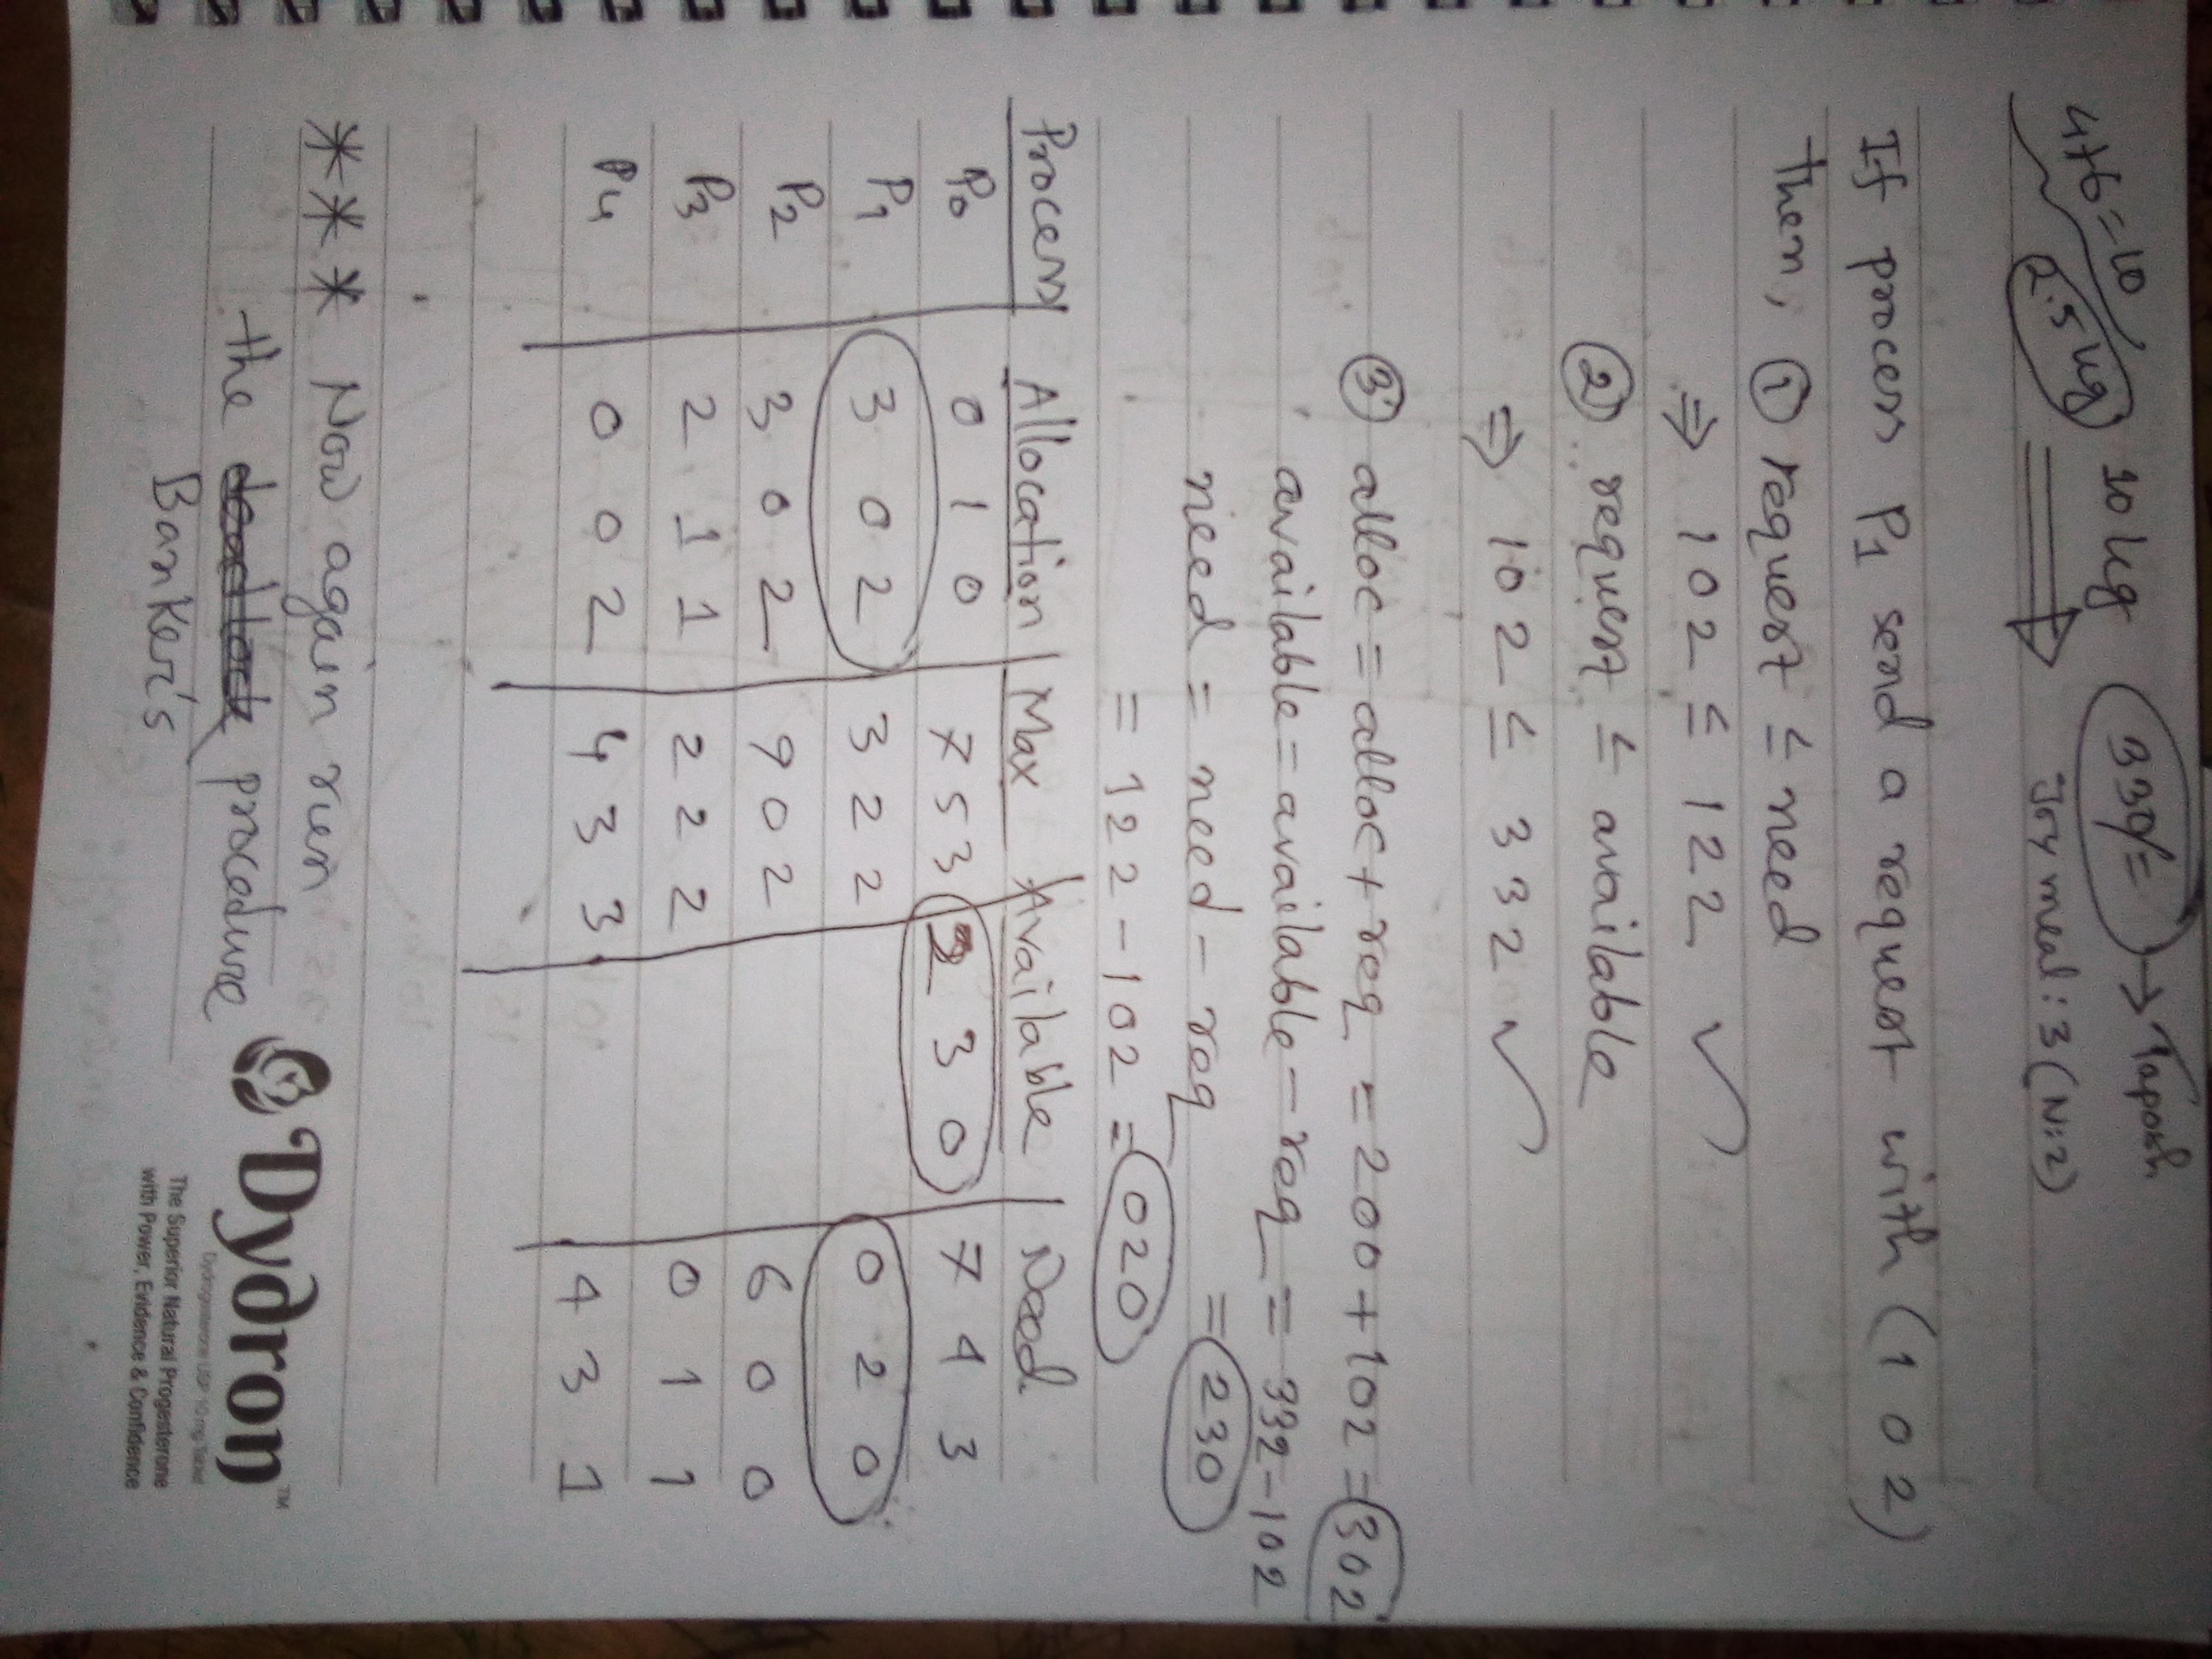 4+6=10
2.5 kg
10 kg
330/= → Taposh
Joy meal: 3 (N:2)
If process P1 send a request with (1 0 2)
then, ① request ≤ need
⇒ 102 ≤ 122 ✓
② request ≤ available
⇒ 102 ≤ 332 ✓
③ alloc = alloc + req = 200 + 102 = 302
available = available - req = 332 - 102
need = need - req = 230
= 122 - 102 = 020
Process Allocation Max Available Need
P0 0 1 0 7 5 3 2 3 0 7 4 3
P1 3 0 2 3 2 2 0 2 0
P2 3 0 2 9 0 2 6 0 0
P3 2 1 1 2 2 2 0 1 1
P4 0 0 2 4 3 3 4 3 1
*** Now again run
the deadlock procedure
Banker's
Dydron™
Dydrogesterone USP 10 mg Tablet
The Superior Natural Progesterone
with Power, Evidence & Confidence